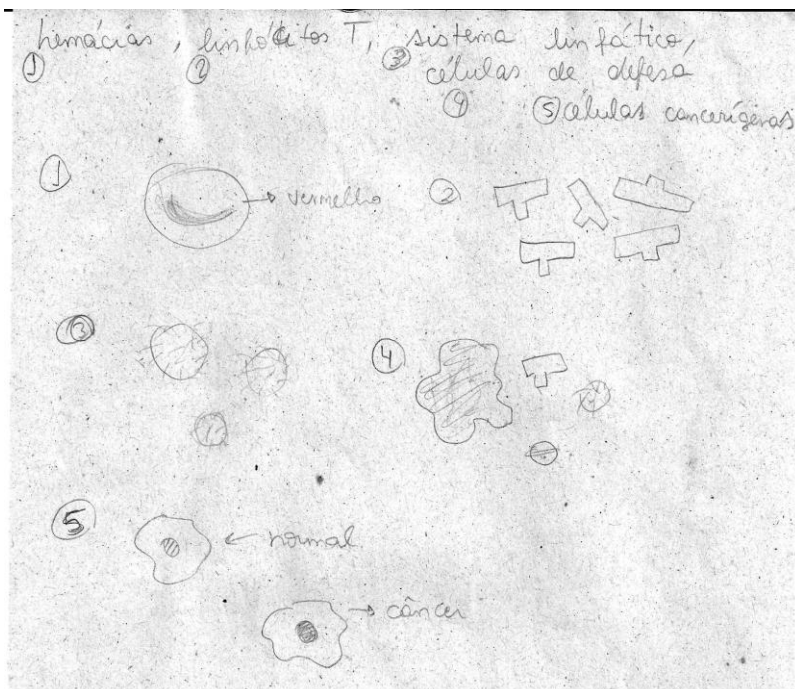 hemácias, linfócitos T, sistema linfático,
① ② ③
células de defesa
④ ⑤ células cancerígenas
① → vermelho ②
③ ④
⑤ ← normal
→ câncer